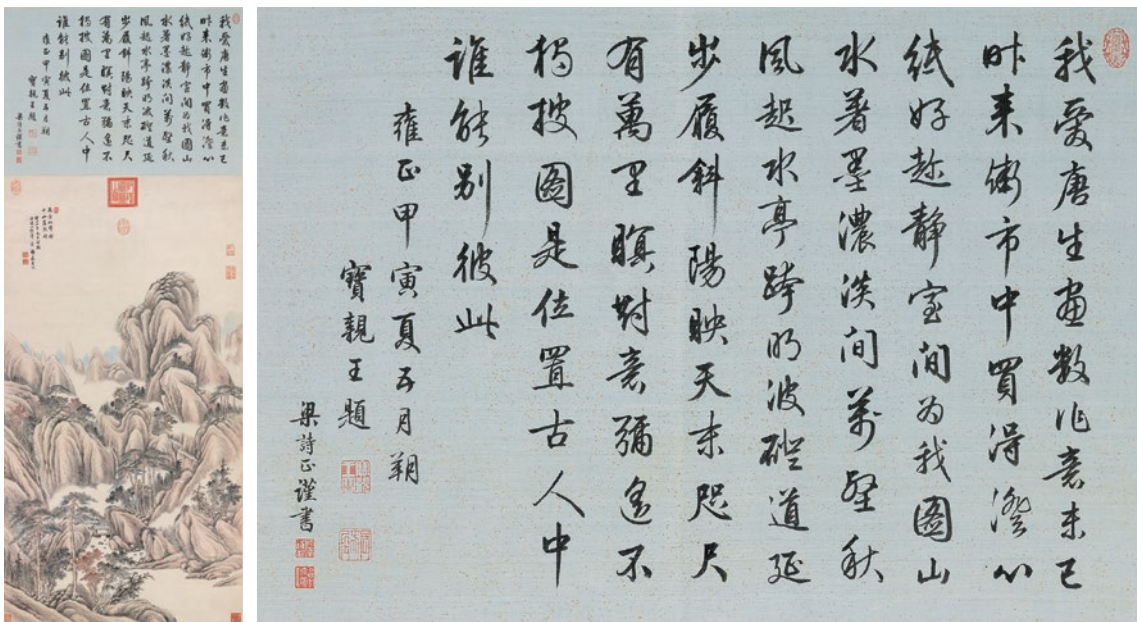 我愛唐生畫數作意未已
昨来街市中買得澄心
紙好趁靜室间为我圖山
水著墨濃淡间萬壑秋
風起水亭跨明波磴道延
步履斜陽映天末咫尺
有萬里瞑對意彌遙不
披圖是位置古人中
誰能別彼此
雍正甲寅夏五月朔
寶親王題
梁詩正謹書